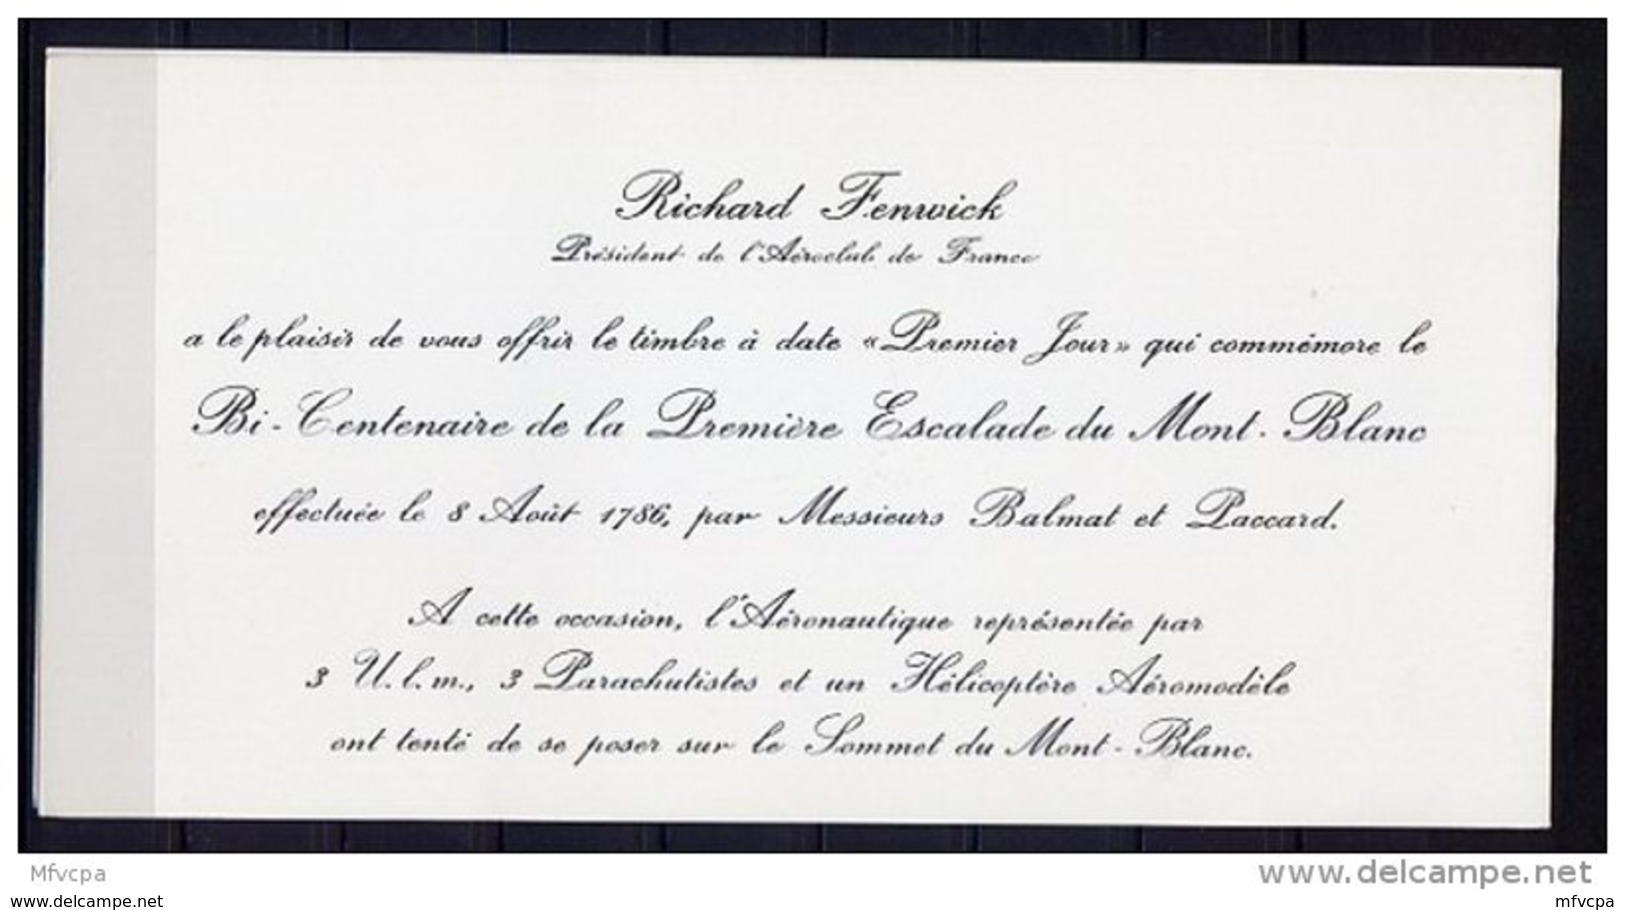 Richard Fenwick
Président de l'Aéroclub de France
a le plaisir de vous offrir le timbre à date «Premier Jour» qui commémore le
Bi-Centenaire de la Première Escalade du Mont-Blanc
effectuée le 8 Août 1786, par Messieurs Balmat et Paccard.
A cette occasion, l'Aéronautique représentée par
3 U.l.m., 3 Parachutistes et un Hélicoptère Aéromodèle
ont tenté de se poser sur le Sommet du Mont-Blanc.
Mfvcpa
www.delcampe.net
www.delcampe.com
mfvcpa